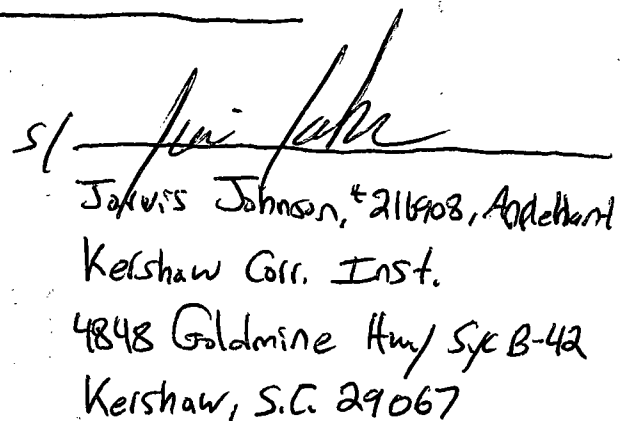 s/
Jarvis Johnson, #216908, Appellant
Kershaw Corr. Inst.
4848 Goldmine Hwy/ Syc B-42
Kershaw, S.C. 29067